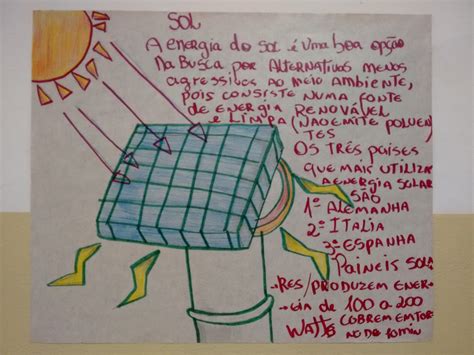 SOL
A ENERGIA DO SOL É UMA BOA OPÇÃO
NA BUSCA POR ALTERNATIVAS MENOS
AGRESSIVAS AO MEIO AMBIENTE,
POIS CONSISTE NUMA FONTE
DE ENERGIA RENOVÁVEL
E LIMPA (NÃO EMITE POLUEN
TES
OS TRÊS PAÍSES
QUE MAIS UTILIZA
A ENERGIA SOLAR
SÃO
1º ALEMANHA
2º ITALIA
3º ESPANHA
PAINEIS SOLA
RES/PRODUZEM ENER-
GIA DE 100 A 200
WATTS COBREM EM TOR
NO DO